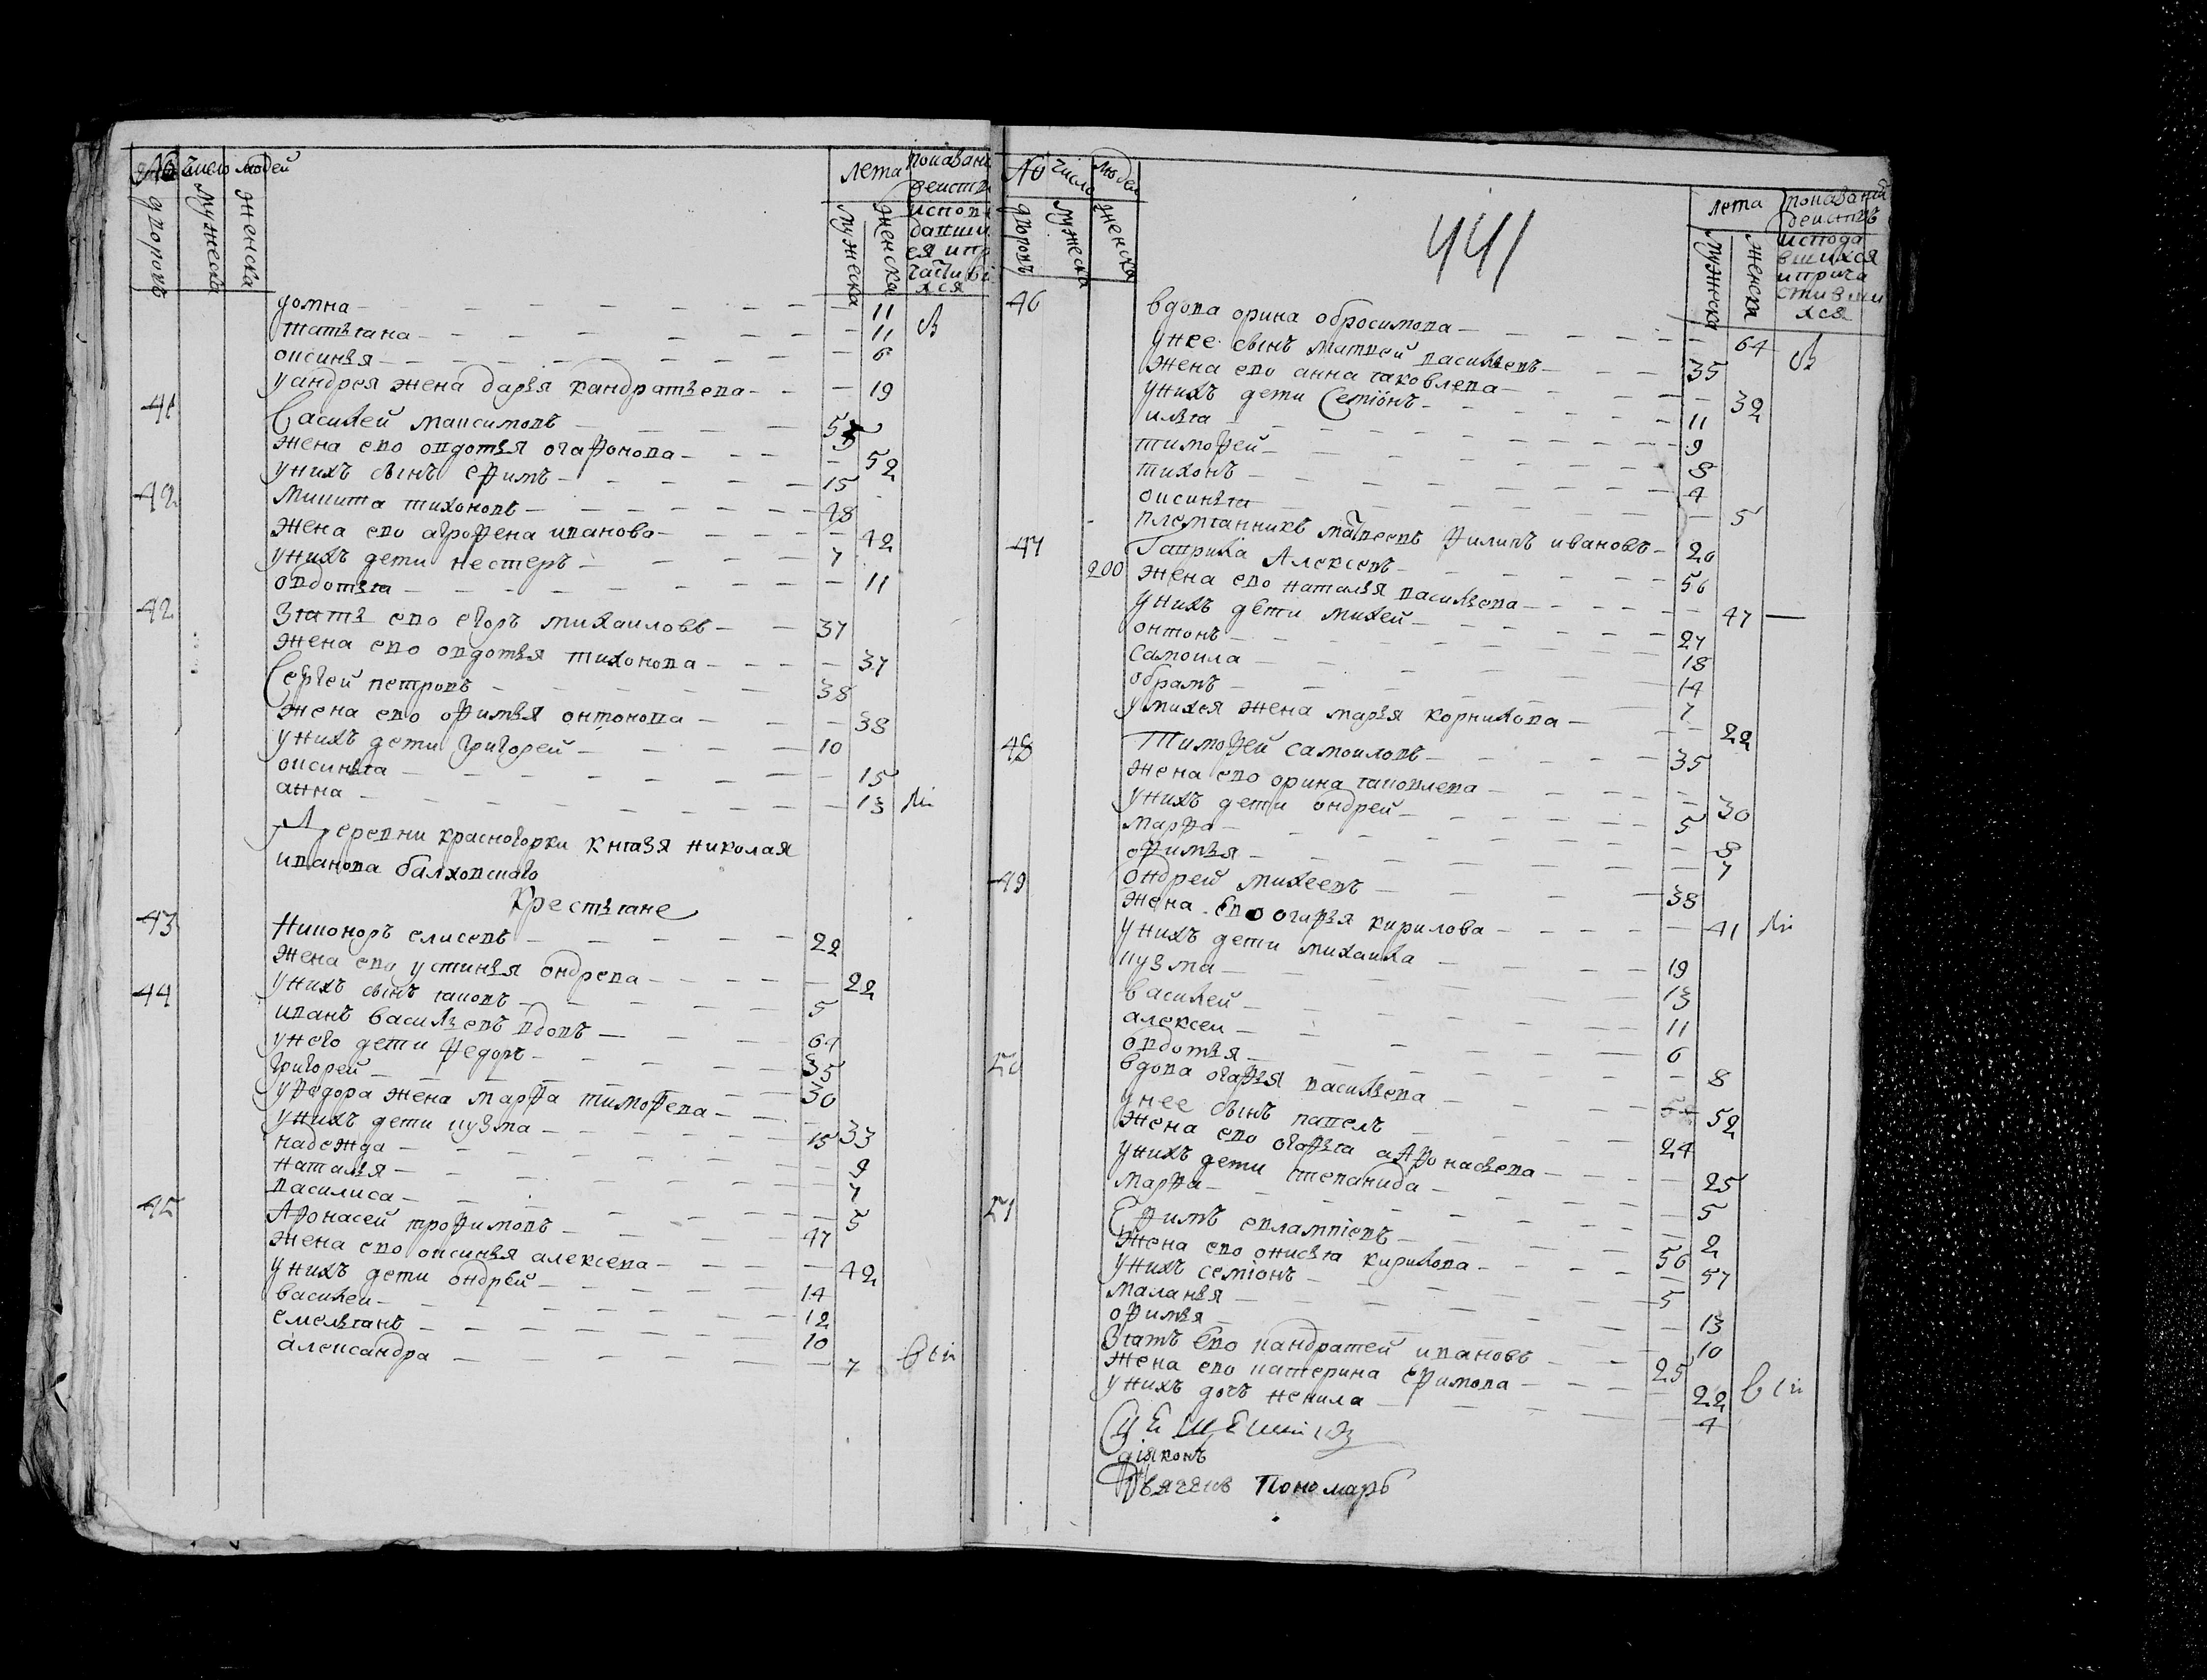 № число людей лета показание действ
дворовъ мужеска женска мужеска женска исповедавшихся и причастившихся
домна — 11
татьяна — 11
оксинья — 6
у андрея жена дарья кандратьева — 19
41 Василей максимовъ
жена ево овдотья огафонова — 52
у нихъ сынъ ефимъ — 15
42 Микита тихоновъ — 48
жена ево аграфена иваново — 42
у нихъ дети нестеръ — 7
овдотья — 11
42 Зять ево егоръ михаиловъ — 37
жена ево овдотья тихонова — 37
Сергей петровъ — 38
жена ево офимья онтонова — 38
у нихъ дети григорей — 10
оксинья — 15
анна — 13
Деревни красногорки князя николая
иванова балховскаго
Крестьяне
43 Никоноръ елисевъ — 22
жена ево устинья ондрева — 22
у нихъ сынъ иаковъ — 5
44 иванъ васильевъ вдовъ — 64
у него дети федоръ — 35
григорей — 30
у федора жена марфа тимофева — 33
у нихъ дети кузма — 15
надежда — 9
наталья — 7
василиса — 5
45 Афонасей трофимовъ — 47
жена ево оксинья алексева — 42
у нихъ дети ондрей — 14
василеи — 12
емельянъ — 10
александра — 7
№ число людей лета показаний действъ
441
дворовъ мужеска женска мужеска женска исповдавшихся и причастившихся
46 вдова орина обросимова — 64
у нее сынъ матвей васильевъ — 35
жена ево анна яковлева — 32
у нихъ дети Семионъ — 11
илья — 9
тимофей — 8
тихонъ — 4
оксинья — 5
племянникъ матвеевъ филипъ ивановъ — 20
47 Гаврила Алексевъ — 56
200 жена ево наталья васильева — 47
у нихъ дети михей — 27
онтонъ — 18
самоила — 14
обрамъ — 7
у михея жена марья корнилова — 22
48 Тимофей самоиловъ — 35
жена ево орина иаковлева — 30
у нихъ дети ондрей — 5
марфа — 8
офимья — 7
49 Ондрей михеевъ — 38
жена ево огафья кирилова — 41
у нихъ дети михаила — 19
кузма — 13
василей — 11
алексеи — 6
овдотья — 8
50 вдова огафья васильева — 52
у нее сынъ павелъ — 24
жена ево огафья афонасьева — 25
у нихъ дети степанида — 5
марфа — 2
51 Ефимъ евлампиевъ — 56
жена ево онисья кирилова — 57
у нихъ семионъ — 5
маланья — 13
офимья — 10
Зять ево кандратей ивановъ — 25
жена ево катерина ефимова — 22
у нихъ дочь ненила — 4
диаконъ
Пономарь